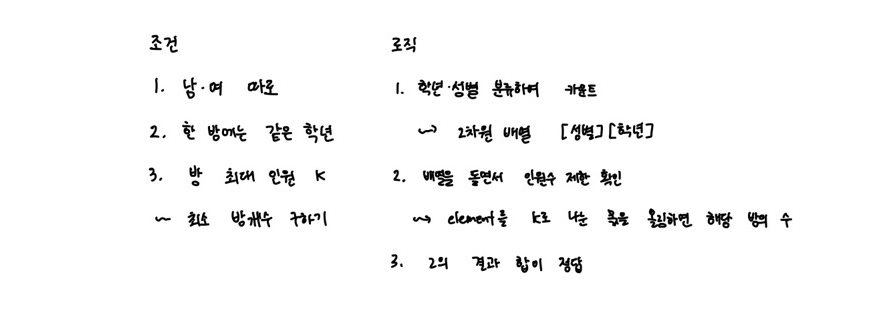 조건
1. 남·여 따로
2. 한 방에는 같은 학년
3. 방 최대 인원 K
~ 최소 방개수 구하기
로직
1. 학년·성별 분류하여 카운트
~> 2차원 배열 [성별][학년]
2. 배열을 돌면서 인원수 제한 확인
~> element를 K로 나눈 몫을 올림하면 해당 방의 수
3. 2의 결과 합이 정답